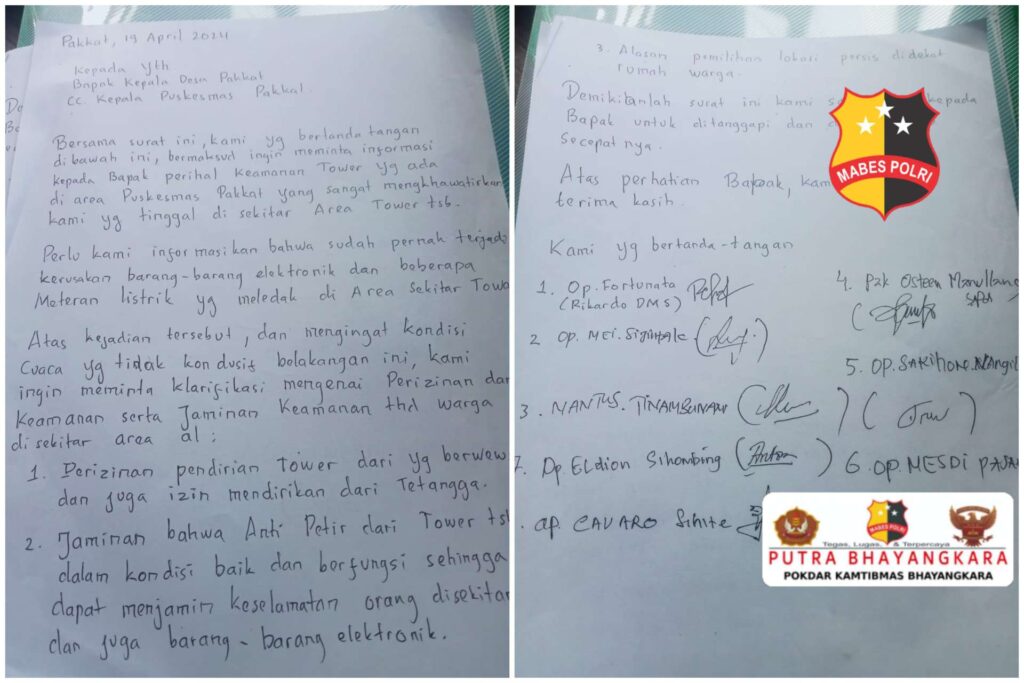 Pakkat, 19 April 2024
Kepada Yth
Bapak Kepala Desa Pakkat
CC. Kepala Puskesmas Pakkat.
Bersama surat ini, kami yg bertanda tangan
dibawah ini, bermaksud ingin meminta informasi
kepada Bapak perihal Keamanan Tower yg ada
di area Puskesmas Pakkat yang sangat mengkhawatirkan
kami yg tinggal di sekitar Area Tower tsb.
Perlu kami informasikan bahwa sudah pernah terjadi
kerusakan barang-barang elektronik dan beberapa
Meteran listrik yg meledak di Area sekitar Towe
Atas kejadian tersebut, dan mengingat kondisi
Cuaca yg tidak kondusif belakangan ini, kami
ingin meminta klarifikasi mengenai Perizinan dan
Keamanan serta Jaminan Keamanan thd warga
disekitar area al :
1. Perizinan pendirian Tower dari yg berwew
dan juga izin mendirikan dari Tetangga.
2. Jaminan bahwa Anti Petir dari Tower tsb
dalam kondisi baik dan berfungsi sehingga
dapat menjamin keselamatan orang disekitar
dan juga barang-barang elektronik.
3. Alasan pemilihan lokasi persis didekat
rumah warga.
Demikianlah surat ini kami kepada
Bapak untuk ditanggapi dan
secepatnya.
Atas perhatian Bapak, kam
terima kasih.
Kami yg bertanda-tangan
1. Op. Fortunata
(Rikardo DMS)
4. Pak Osteen Manullang
2. Op. MEI. Sigmpale
5. OP. SARIHON. Nangil
3. NANTUS. TINAMBUNAN
7. Op. Eldion Sihombing (Anton)
6. OP. MESDI PASA
. op. CAVARO Sihite
MABES POLRI
MABES POLRI
Tegas, Lugas, & Terpercaya
PUTRA BHAYANGKARA
POKDAR KAMTIBMAS BHAYANGKARA